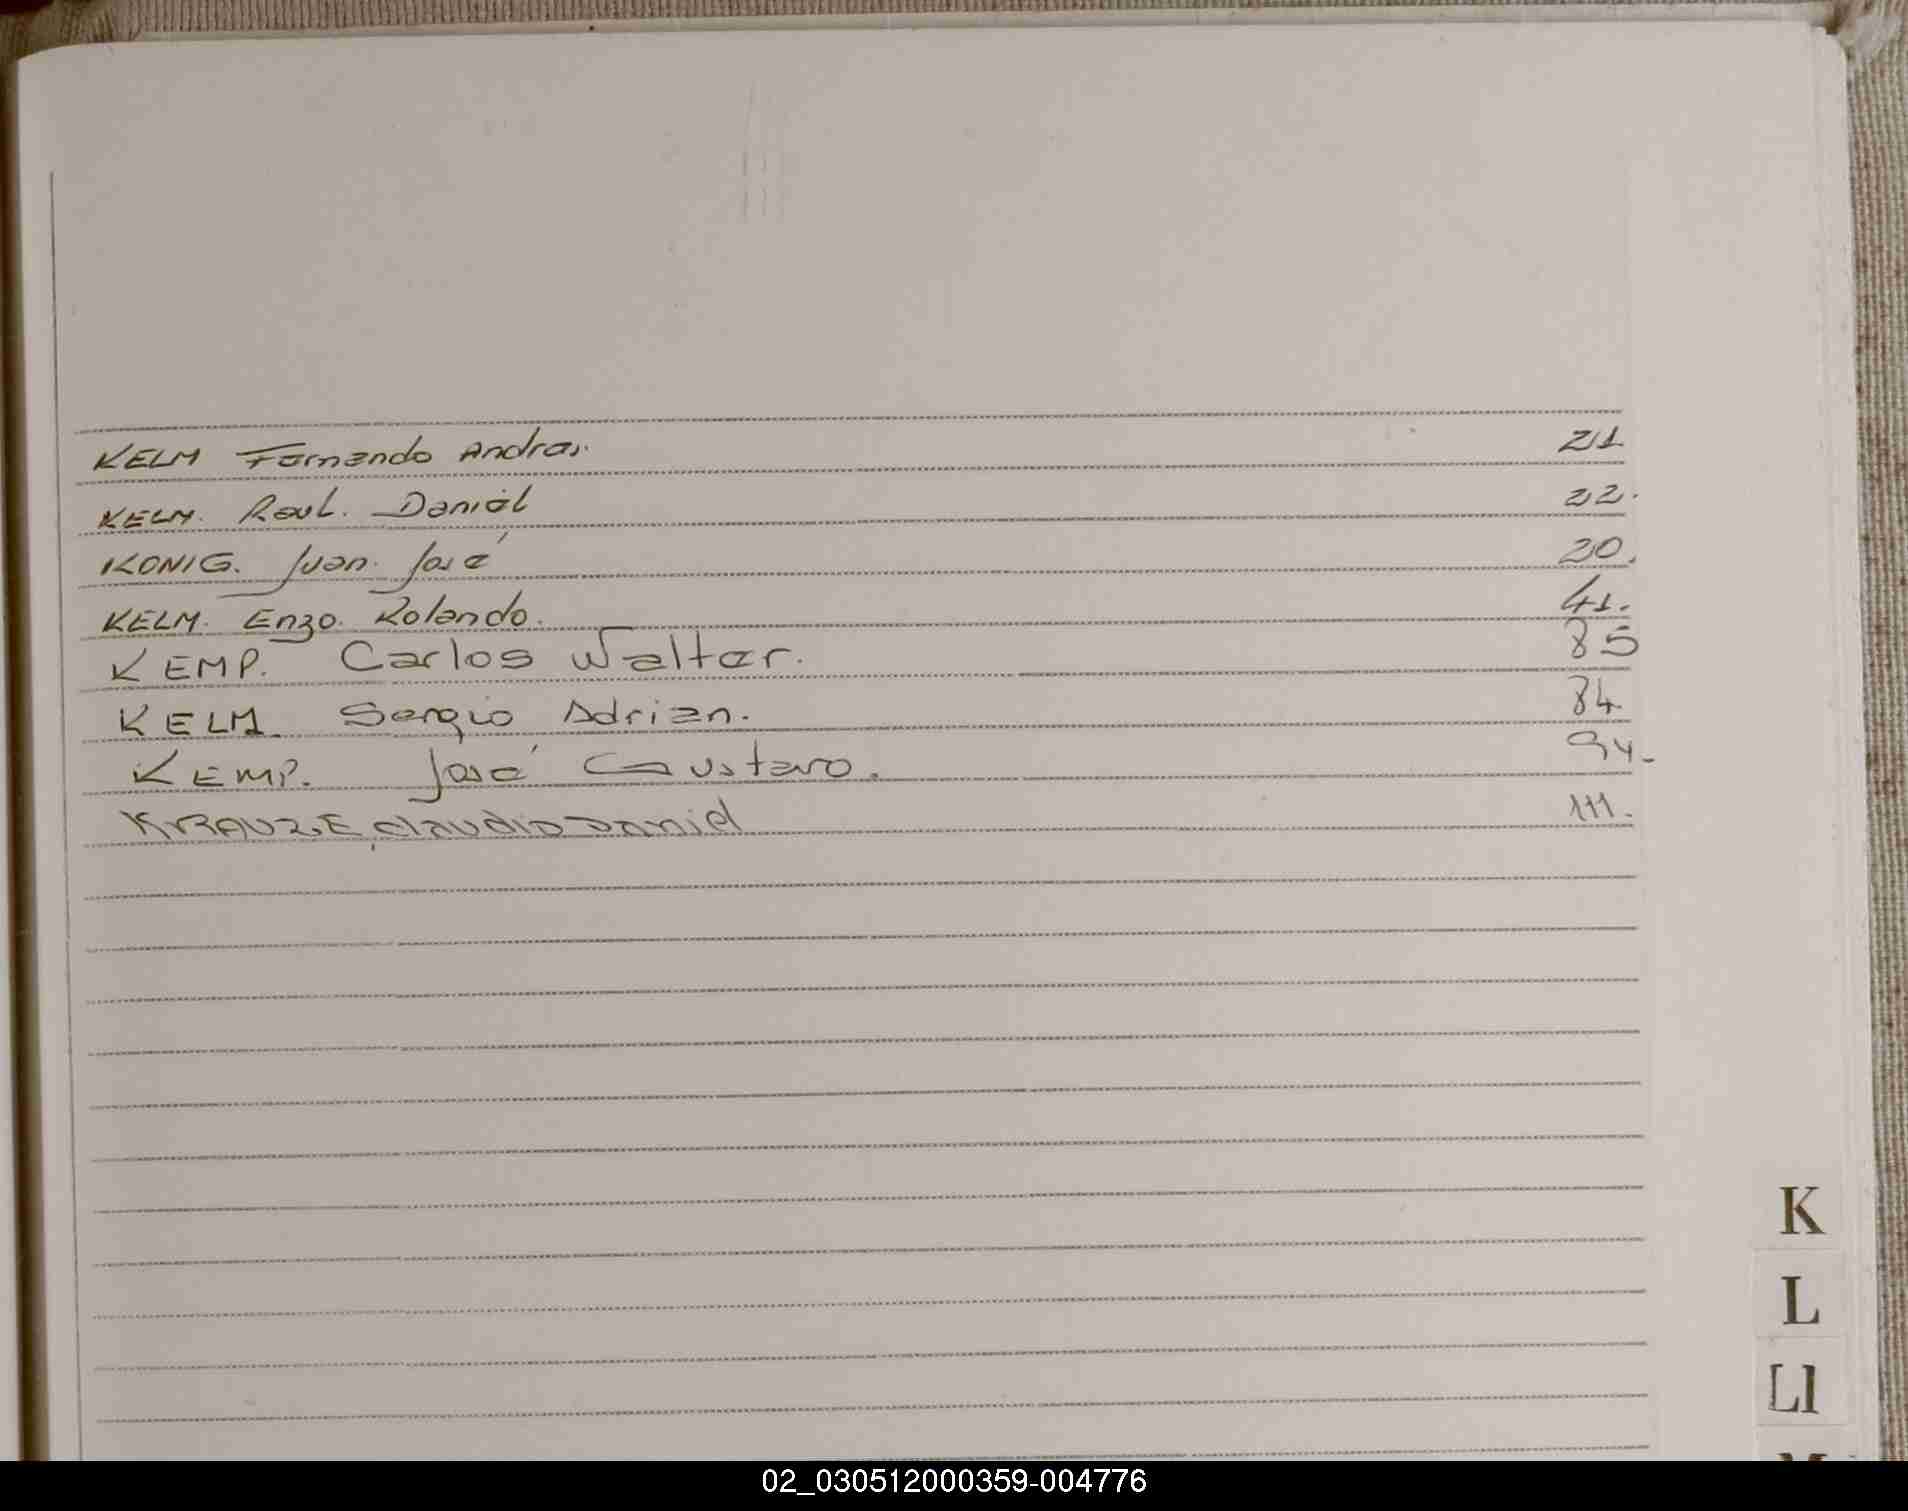 KELM Fernando Andres. 21
KELM. Raul. Daniel 22.
KONIG. Juan. José 20.
KELM. Enzo. Rolando. 41.
KEMP. Carlos Walter. 85
KELM. Sergio Adrian. 84
KEMP. José Gustavo. 94.
KRAUZE, Claudio Daniel 111.
K
L
Ll
02_030512000359-004776